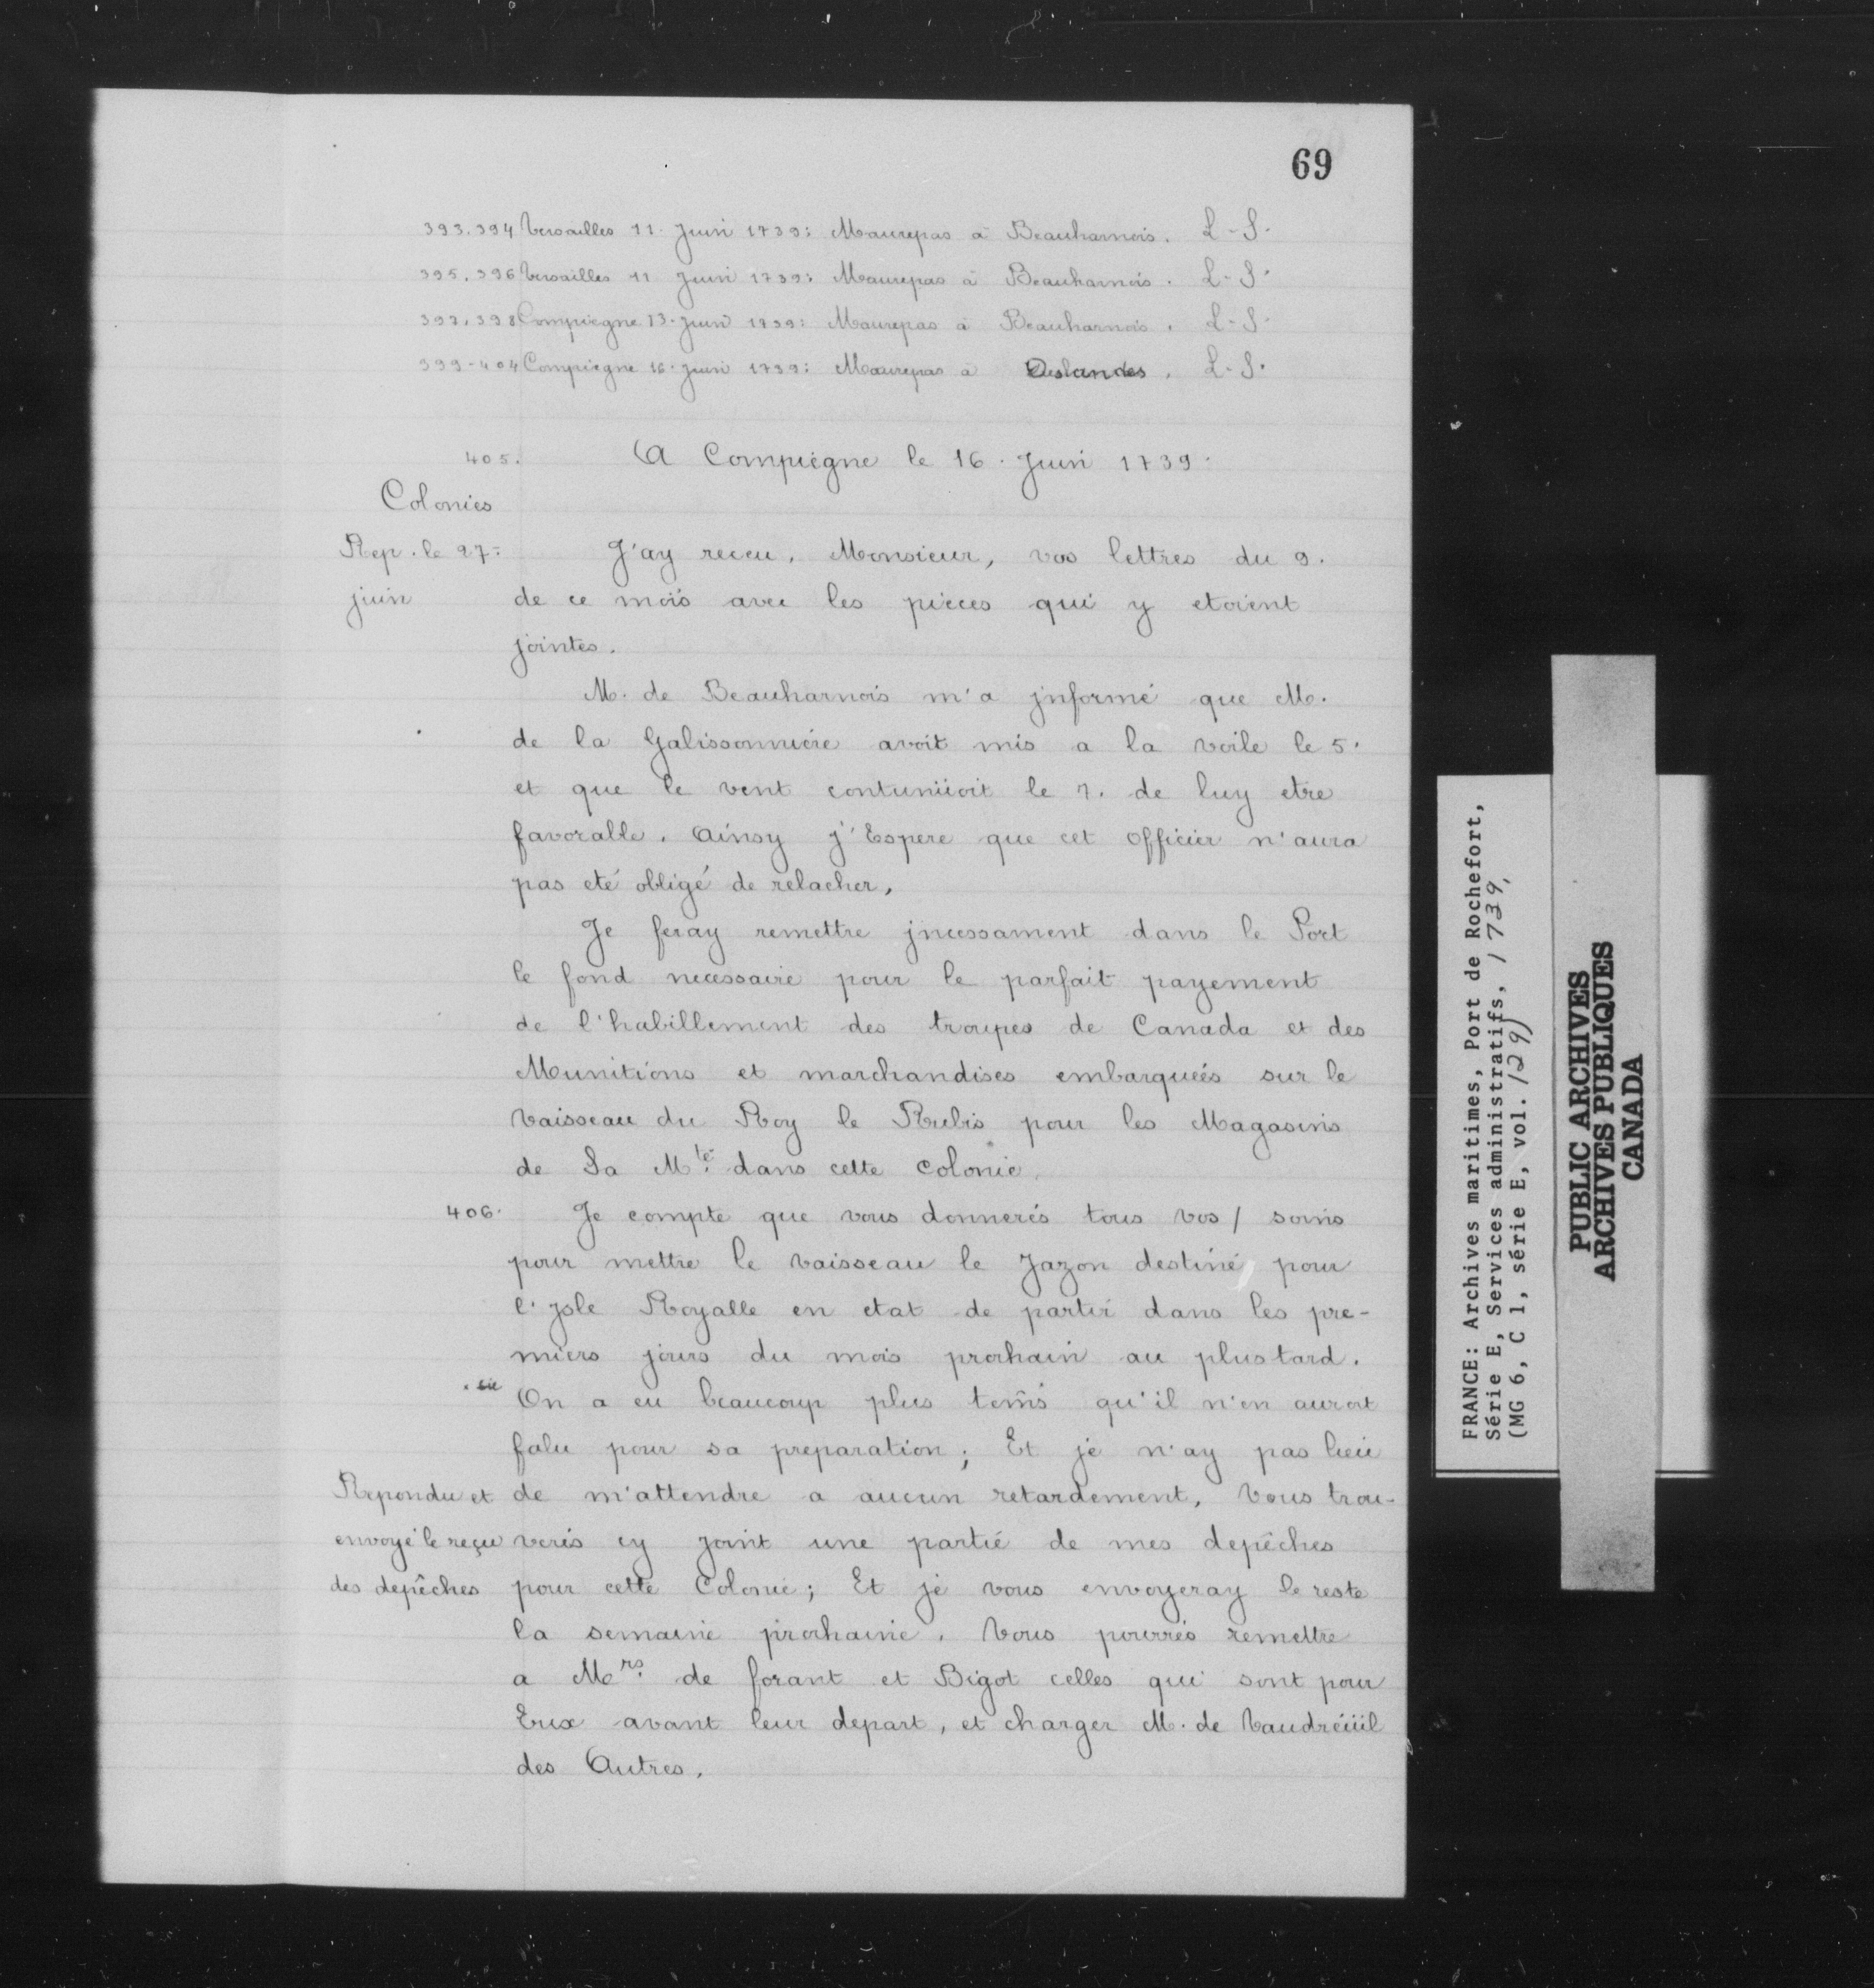 69
393.394 Versailles 11. Juin 1739: Maurepas à Beauharnois. L-S.
395.396 Versailles 11 Juin 1739: Maurepas à Beauharnois. L-S.
397.398 Compiègne 13. Juin 1739: Maurepas à Beauharnois. L-S.
399-404 Compiègne 16. Juin 1739: Maurepas à Deslandes. L-S.
405. A Compiègne le 16. Juin 1739.
Colonies
Rep. le 27=
juin
J'ay receu, Monsieur, vos lettres du 9.
de ce mois avec les pièces qui y etoient
jointes.
M. de Beauharnois m'a jnformé que M.
de la Galissonnière avoit mis a la voile le 5.
et que le vent contunüoit le 7. de luy etre
favorable. Ainsy j'Espere que cet officier n'aura
pas eté obligé de relacher,
Je feray remettre jncessament dans le Port
le fond necessaire pour le parfait payement
de l'habillement des troupes de Canada et des
Munitions et marchandises embarqueés sur le
vaisseau du Roy le Rubis pour les Magasins
de Sa M.té dans cette colonie.
406. Je compte que vous donnerés tous vos / soins
pour mettre le vaisseau le Jazon destiné pour
l'jsle Royalle en etat de partir dans les pre-
miers jours du mois prochain au plustard.
On a eu beaucoup plus tems qu'il n'en auroit
falu pour sa preparation; Et je n'ay pas lieu
Repondu et
envoyé le reçu
des depêches
de m'attendre a aucun retardement, Vous trou-
verés cy joint une partie de mes depêches
pour cette Colonie; Et je vous envoyeray le reste
la semaine prochaine. Vous pourrés remettre
a M.rs de forant et Bigot celles qui sont pour
Eux avant leur depart, et charger M. de Vaudreüil
des Autres.
FRANCE: Archives maritimes, Port de Rochefort,
Série E, Services administratifs, 1739,
(MG 6, C 1, série E, vol. 129)
PUBLIC ARCHIVES
ARCHIVES PUBLIQUES
CANADA